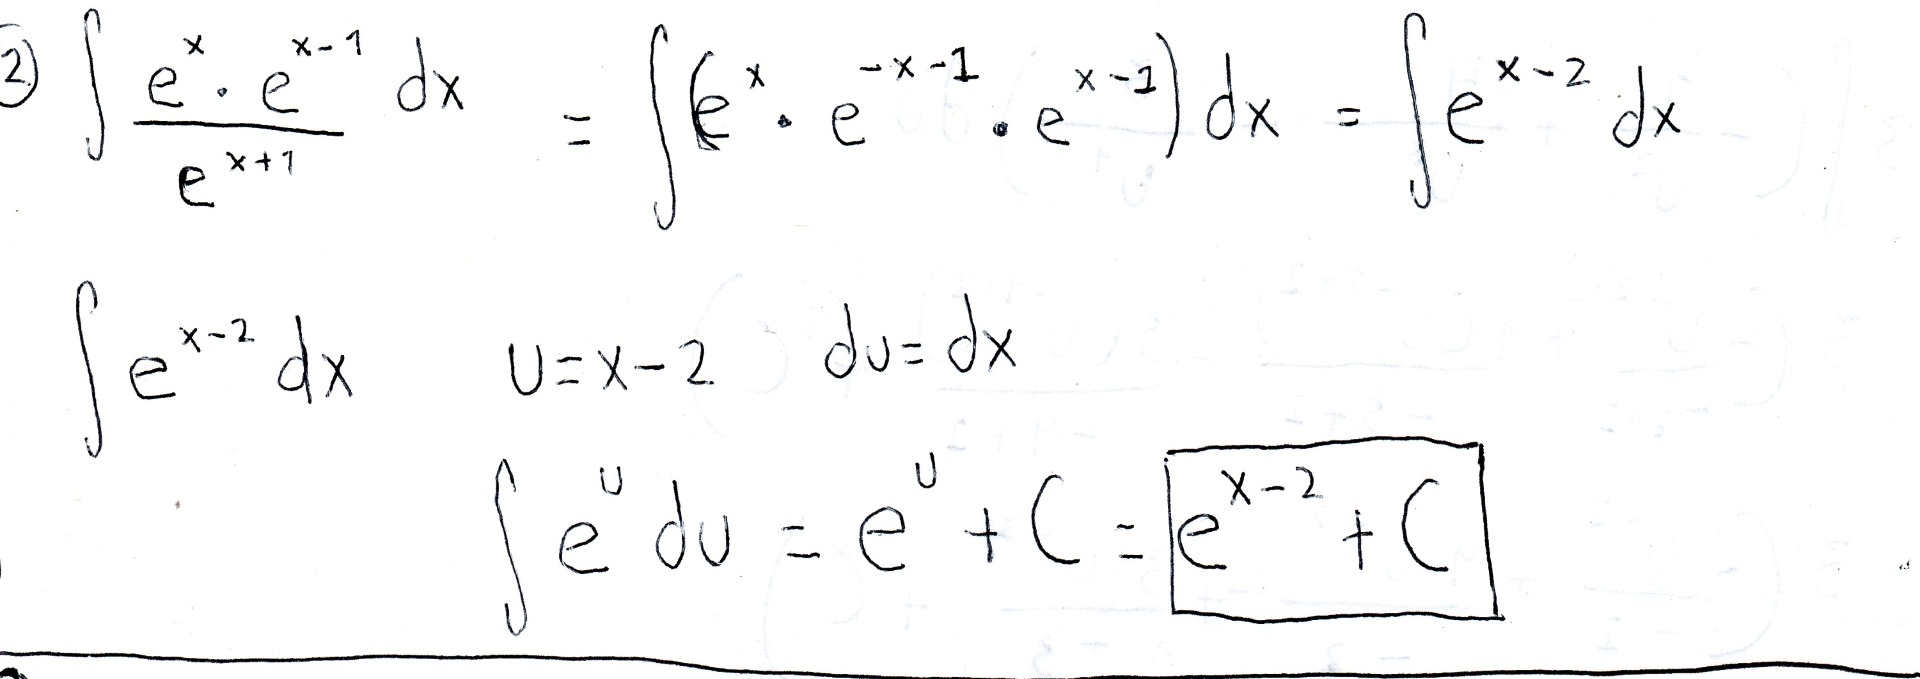 ② ∫ (e^x · e^(x-1)) / e^(x+1) dx = ∫ (e^x · e^(-x-1) · e^(x-1)) dx = ∫ e^(x-2) dx
∫ e^(x-2) dx u=x-2 du=dx
∫ e^u du = e^u + C = e^(x-2) + C